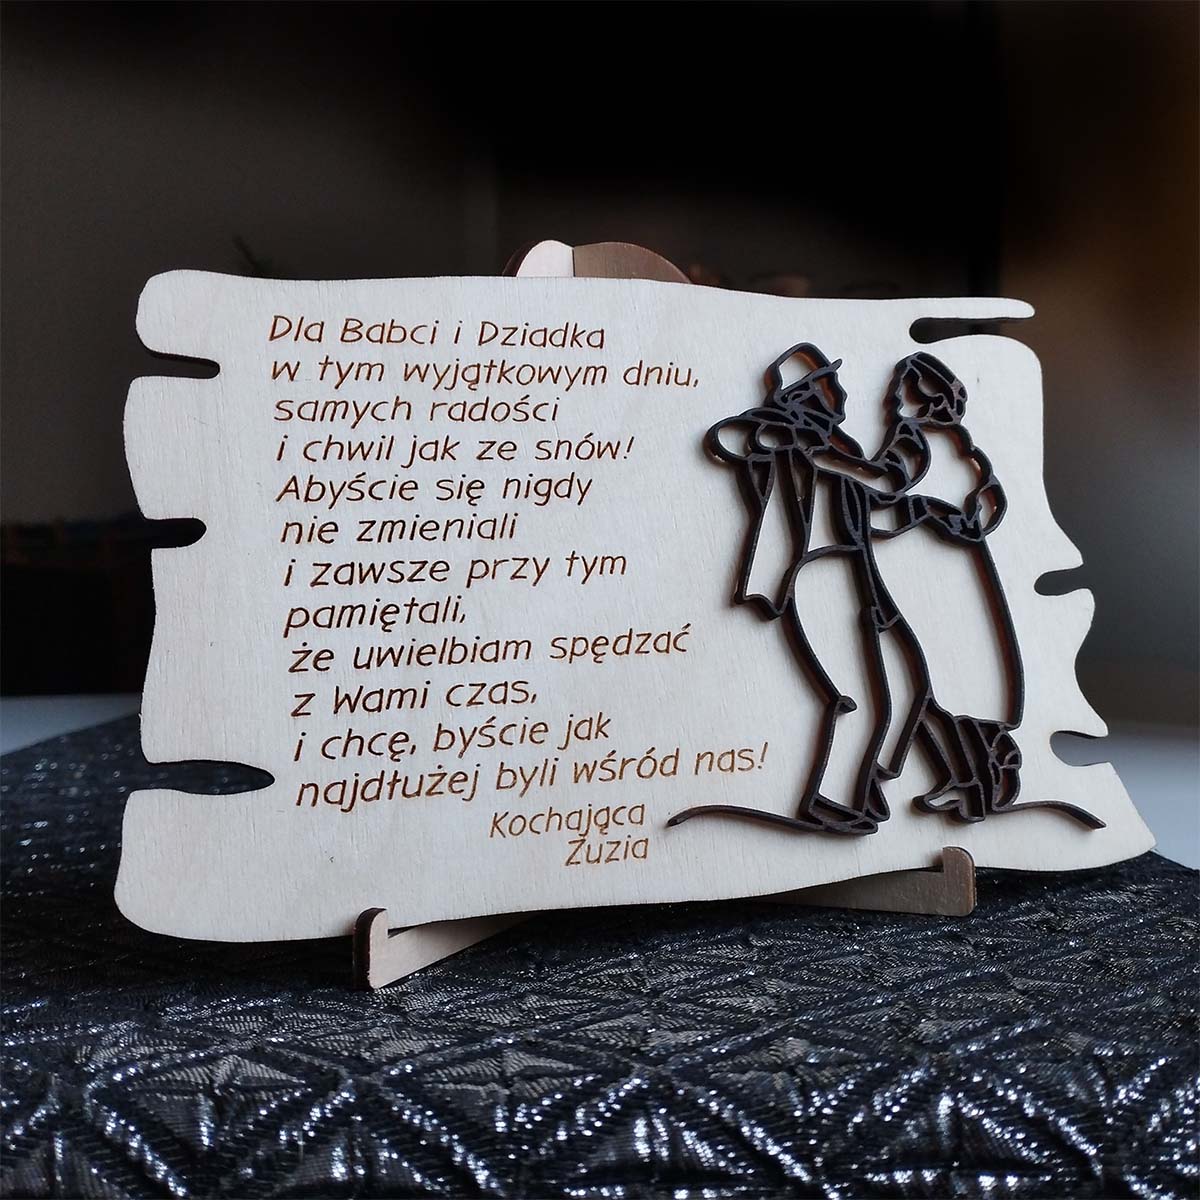 Dla Babci i Dziadka
w tym wyjątkowym dniu,
samych radości
i chwil jak ze snów!
Abyście się nigdy
nie zmieniali
i zawsze przy tym
pamiętali,
że uwielbiam spędzać
z Wami czas,
i chcę, byście jak
najdłużej byli wśród nas!
Kochająca
Zuzia